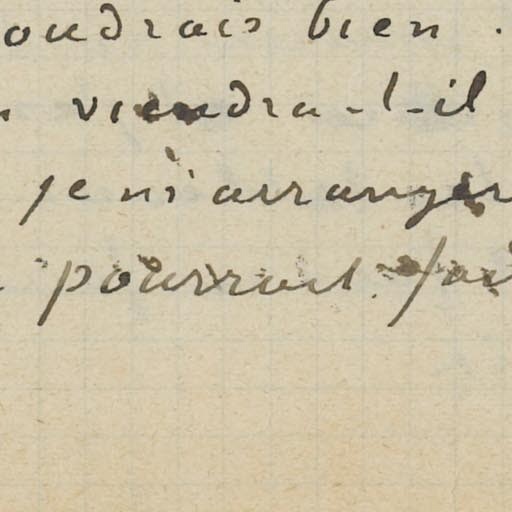 oudrais bien.
viendra-t-il
je m'arranger
pourrait fai